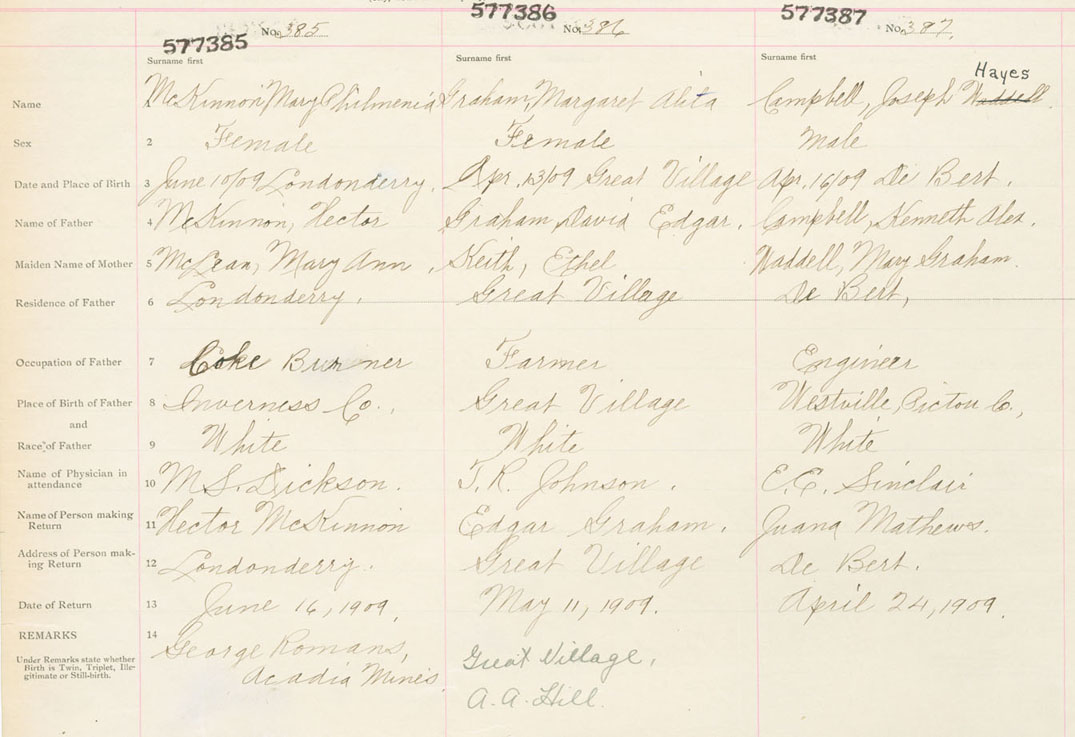 577385 No. 385
577386 No. 386
577387 No. 387.
Surname first Surname first Surname first
Hayes
Name McKinnon, Mary Philmenia Graham, Margaret Alita Campbell, Joseph Waddell.
Sex 2 Female Female Male
Date and Place of Birth 3 June 10/09 Londonderry. Apr. 13/09 Great Village Apr. 16/09 De Bert.
Name of Father 4 McKinnon, Hector Graham, David Edgar. Campbell, Kenneth Alex.
Maiden Name of Mother 5 McLean, Mary Ann, Keith, Ethel Waddell, Mary Graham.
Residence of Father 6 Londonderry. Great Village De Bert,
Occupation of Father 7 Coke Burner Farmer Engineer
Place of Birth of Father 8 Inverness Co., Great Village Westville, Pictou Co.,
and
Race of Father 9 White White White
Name of Physician in
attendance 10 M.S. Dickson. T.R. Johnson. E.E. Sinclair
Name of Person making
Return 11 Hector McKinnon Edgar Graham. Juana Mathews.
Address of Person mak-
ing Return 12 Londonderry. Great Village De Bert.
Date of Return 13 June 16, 1909. May 11, 1909. April 24, 1909.
REMARKS 14 George Romans,
Under Remarks state whether
Birth is Twin, Triplet, Ille-
gitimate or Still-birth.
Acadia Mines
Great Village,
A.A. Hill.